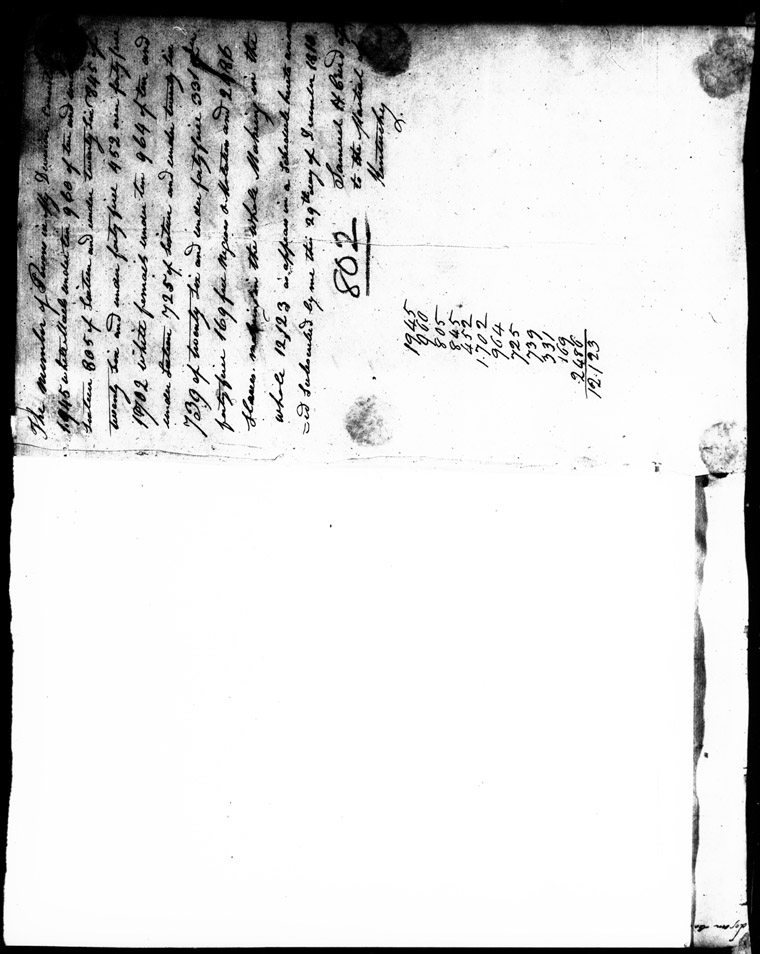 The number of Persons in my Division
1,945 white Males under ten 960 of ten and under
Sixteen 805 of Sixteen and under twenty six 845 of
twenty six and under forty five 452 over forty five
1702 white females under ten 964 of ten and
under Sixteen 725 of Sixteen and under twenty six
739 of twenty six and under forty five 331 of
forty five 169 free Negroes or Mulattoes and 2,486
Slaves. making in the whole
whole 12,123 as appears in a Schedule hereto
Subscribed by me this 29th day of December 1810
Samuel H
to the Marshal of
Kentucky
802
1945
960
805
845
452
1.702
964
725
739
331
169
2486
12.123